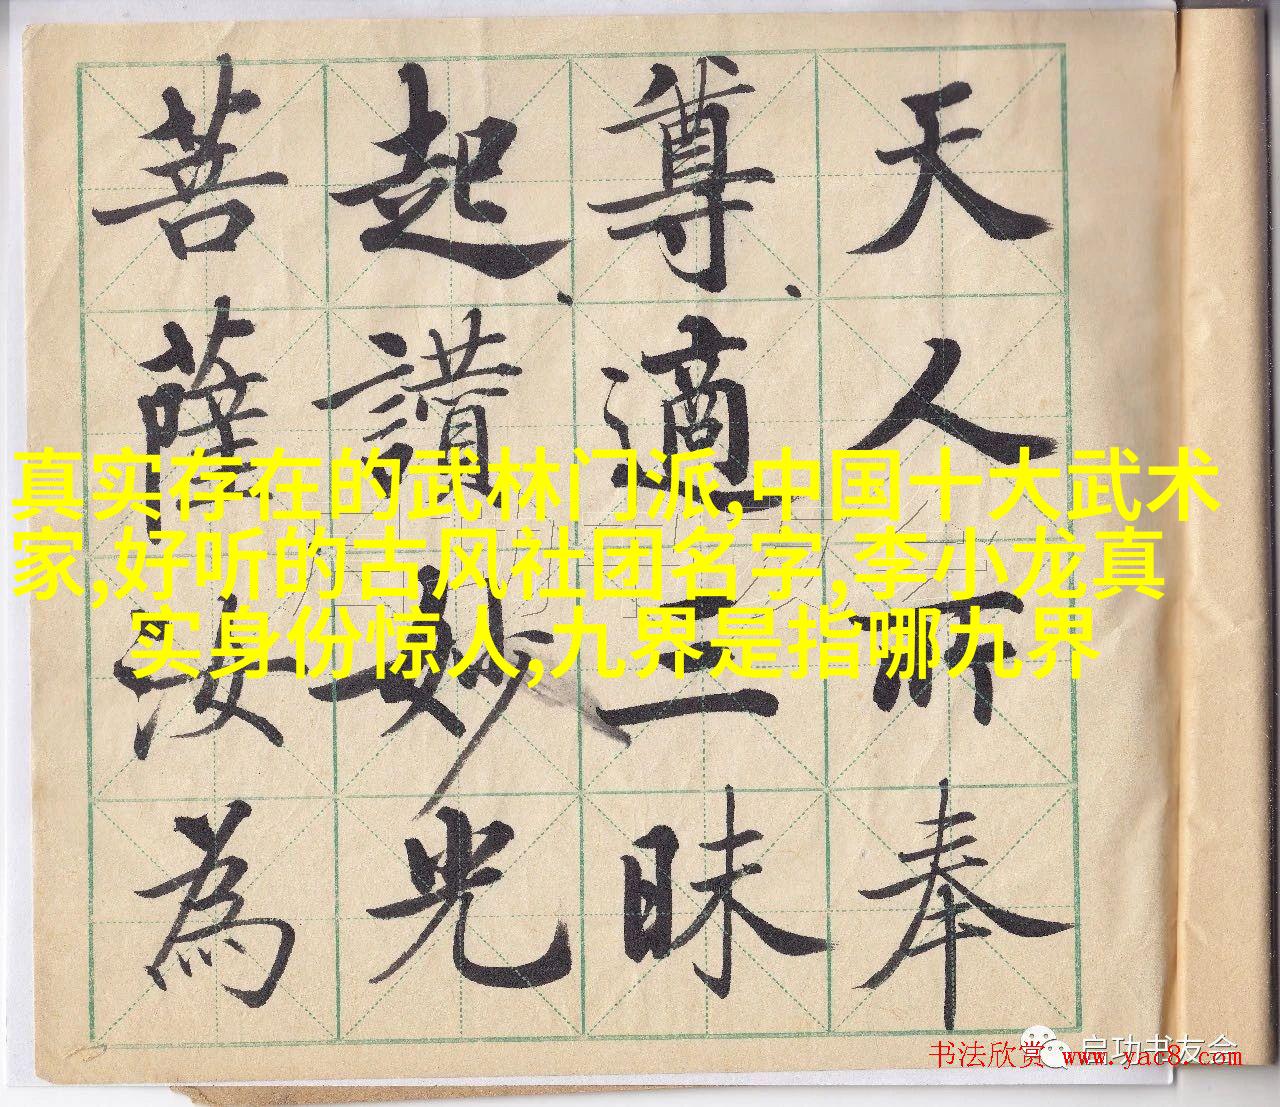 天人所奉
尊適三昧
起讃妙光
菩薩汝為
真实存在的武林门派,中国十大武术
家,好听的古风社团名字,李小龙真
实身份惊人,九界是指哪九界
启功书友会
书法欣赏 www.yac8.com